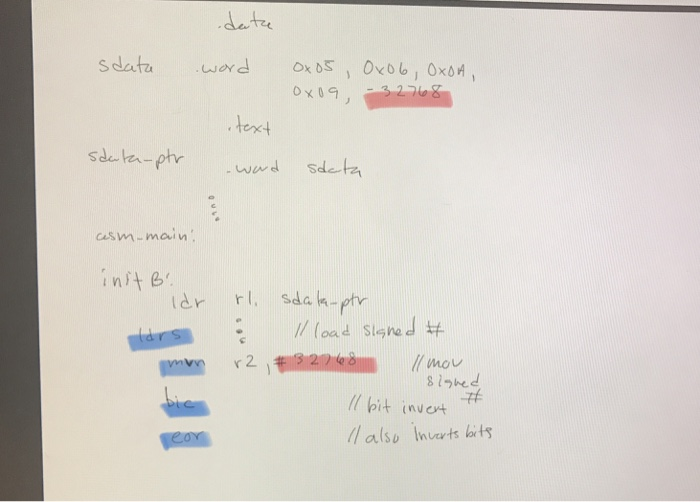 .data
sdata .word 0x05, 0x06, 0x0A,
0x09, -32768
.text
sdata-ptr .word sdata
asm-main:
init B:
ldr r1, sdata-ptr
ldrs // load signed #
mvn r2, #32768 // mov
signed
#
bic // bit invert
eor // also inverts bits